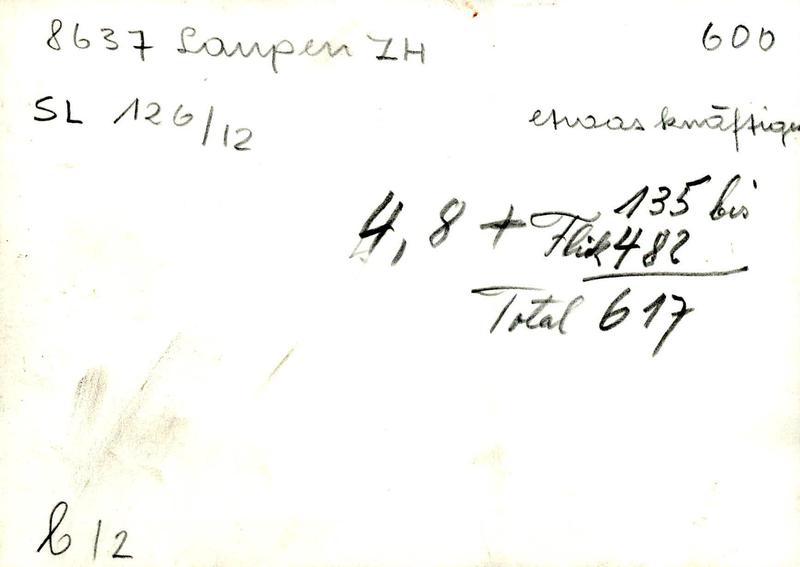 8637 Laupen ZH 600
SL 126/12 etwas kräftiger
135 bis
4,8 + Flik 482
Total 617
b/2